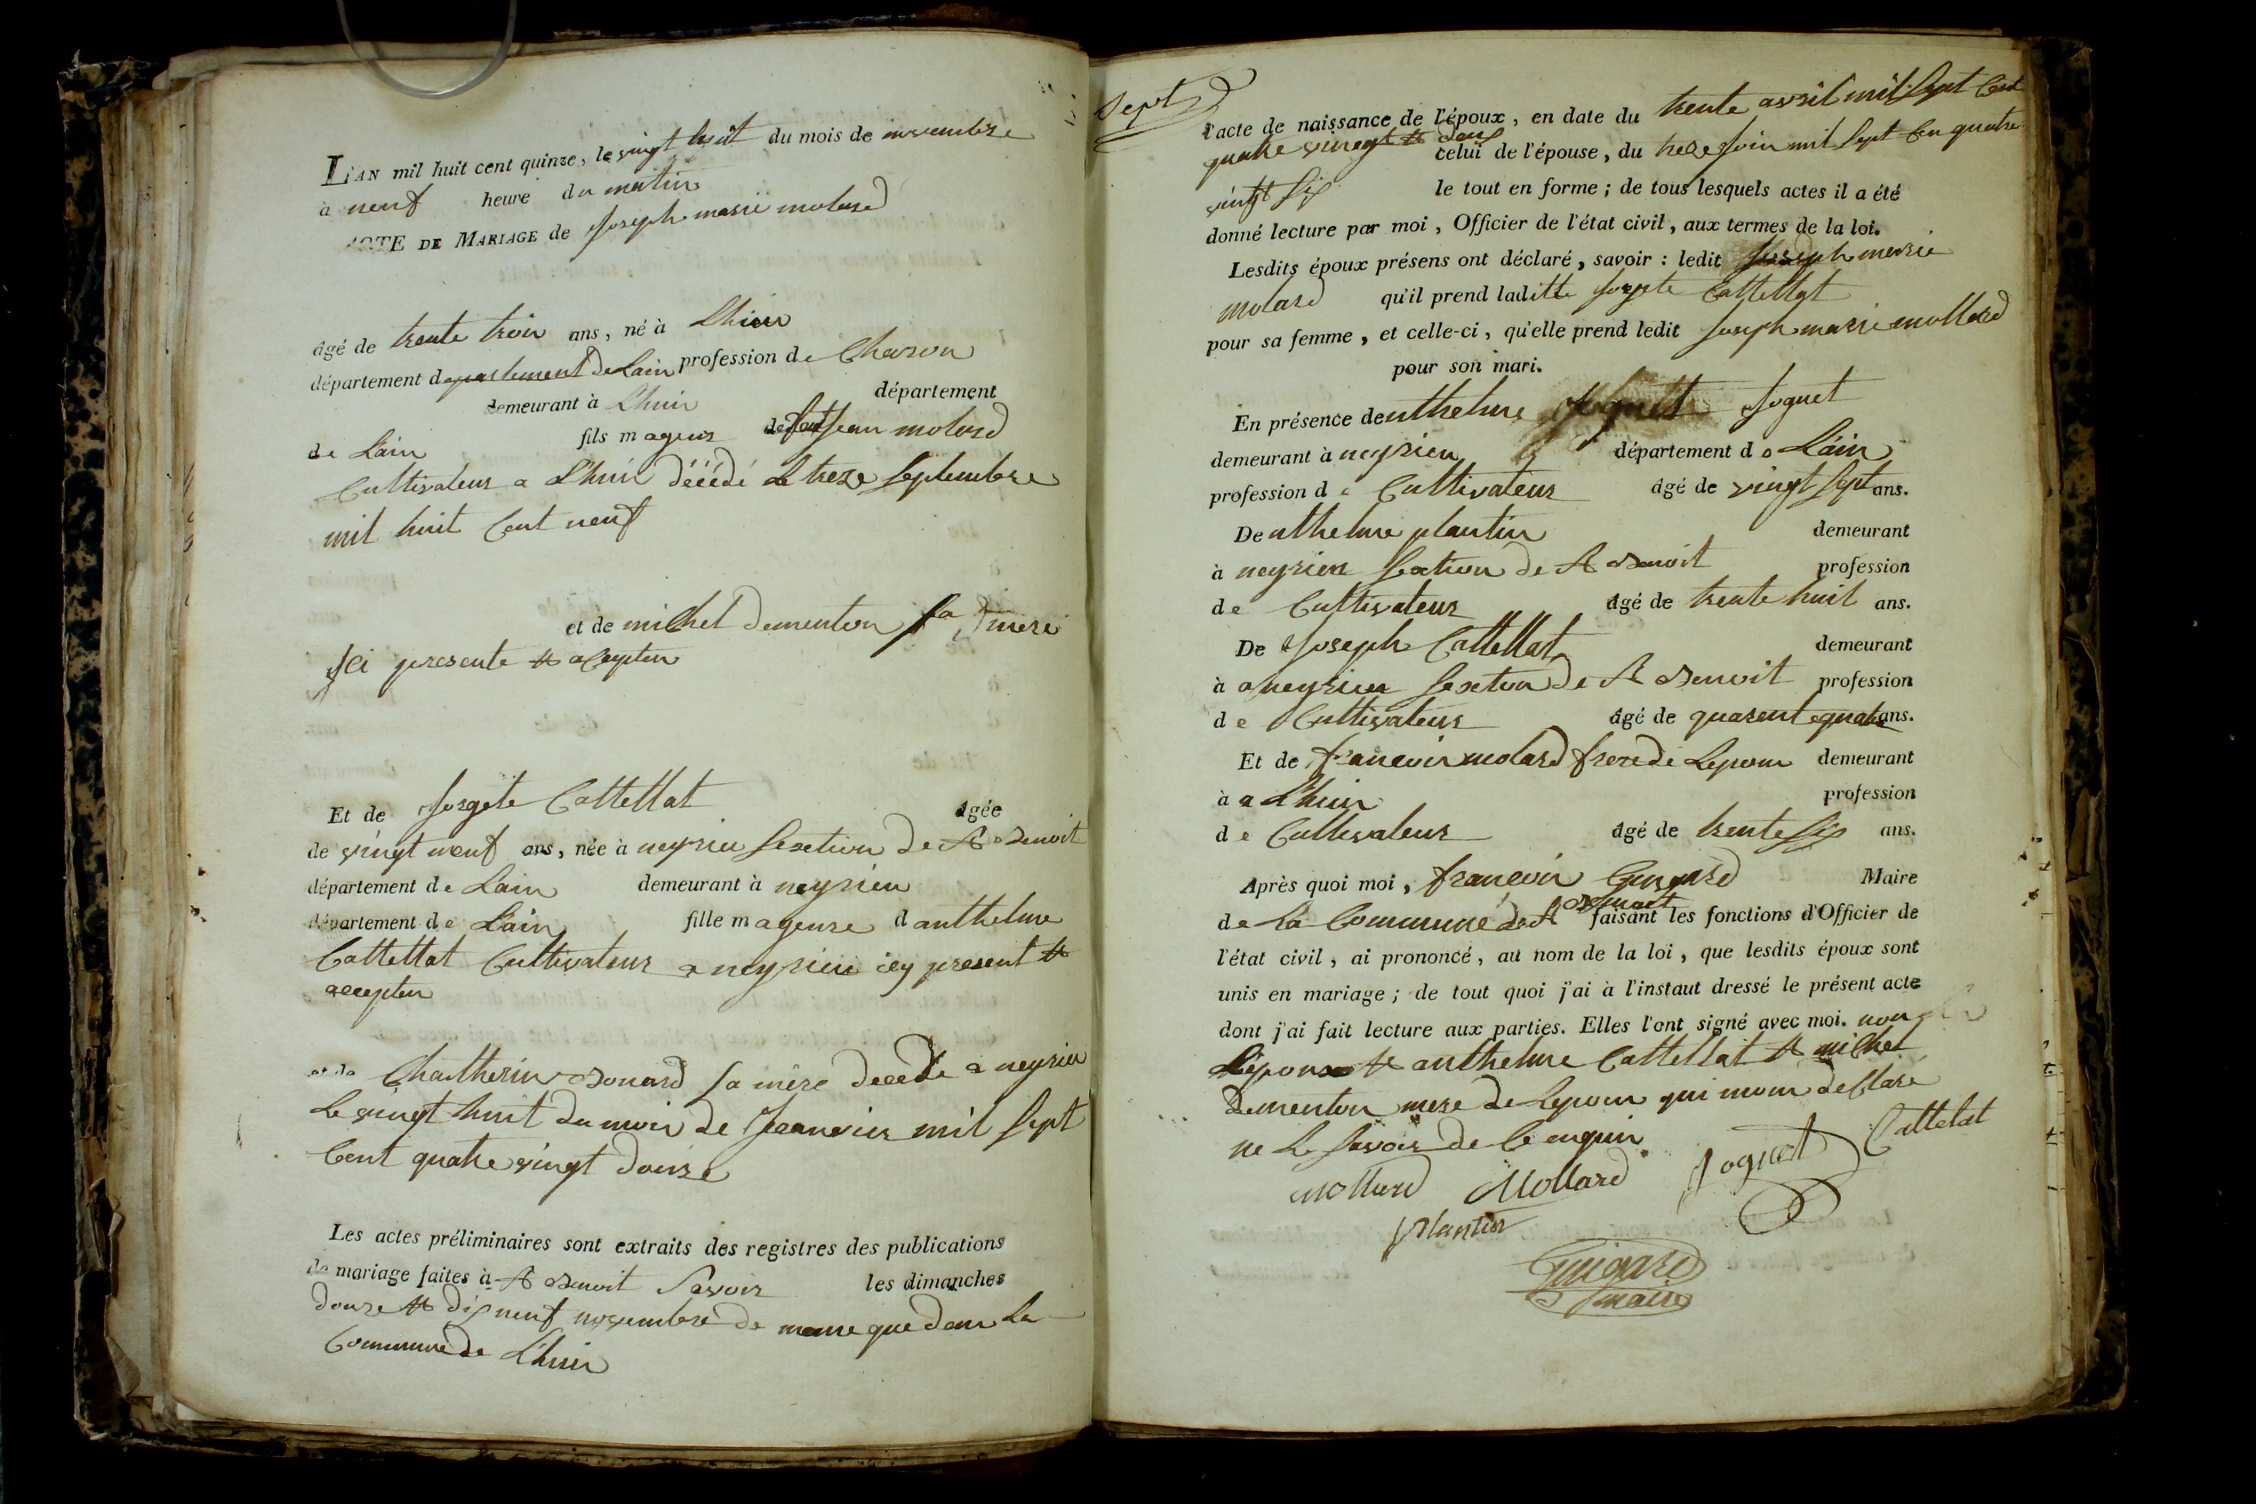 L'AN mil huit cent quinze, le vingt huit du mois de novembre
à neuf heure du matin
ACTE DE MARIAGE de Joseph marie molard
âgé de trente trois ans, né à Lhuis
département departement De Lain profession de Charon
demeurant à Lhuis département
de Lain fils mageur de feu Jean molard
Cultivateur a Lhuis décédé le treze septembre
mil huit Cent neuf
et de michel dementon sa mere
ici presente et aceptan
Et de Jorgete Cattellat âgée
de vingt neuf ans, née à neyrieu sextion de St Benoit
département de Lain demeurant à neyrieu
département de Lain fille mageure d anthelme
Cattellat Cultivateur a neyrieu icy present et
acceptan
et de Chatherin Bonard sa mère decede a neyrieu
le vingt huit du mois de Jeanvier mil sept
Cent quatre vingt douze
Les actes préliminaires sont extraits des registres des publications
de mariage faites à St Benoit Savoir les dimanches
douze et dix neuf novembre de meme que dans la
Commune de Lhuis
Sept
l'acte de naissance de l'époux, en date du trente avril mil sept Cent
quatre vingt et deux celui de l'épouse, du treze Juin mil sept Cen quatre
vintgt six le tout en forme ; de tous lesquels actes il a été
donné lecture par moi, Officier de l'état civil, aux termes de la loi.
Lesdits époux présens ont déclaré, savoir : ledit Joseph marie
molard qu'il prend laditte Jorgete Cattellat
pour sa femme, et celle-ci, qu'elle prend ledit Joseph marie mollard
pour son mari.
En présence de nthelme Joguet
demeurant à neyrieu département d e Lain
profession d e Cultivateur âgé de vingt sept ans.
De nthelme plantin demeurant
à neyrieu sextion de St Benoit profession
de Cultivateur âgé de trente huit ans.
De Joseph Cattellat demeurant
à a neyrieu sextion de St Benoit profession
de Cultivateur âgé de quarent e quatre ans.
Et de francois molard frere de Lepoux demeurant
à a Lhuis profession
de Cultivateur âgé de trente six ans.
Après quoi moi, francois Guigard Maire
de La Commune de St Benoit faisant les fonctions d'Officier de
l'état civil, ai prononcé, au nom de la loi, que lesdits époux sont
unis en mariage ; de tout quoi j'ai à l'instaut dressé le présent acte
dont j'ai fait lecture aux parties. Elles l'ont signé avec moi. non
Lepouse et anthelme Cattellat et michel
dementon mere de Lepoux qui mon declare
ne le savoir de ce enquis
Mollard Mollard Joguet Cattelat
Plantin
Guigard
maire